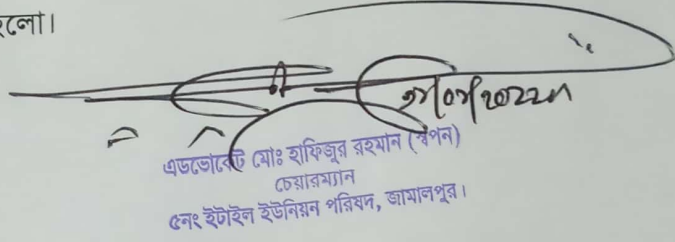 হলো।
এডভোকেট মোঃ হাফিজুর রহমান (স্বপন)
চেয়ারম্যান
৫নং ইটাইল ইউনিয়ন পরিষদ, জামালপুর।